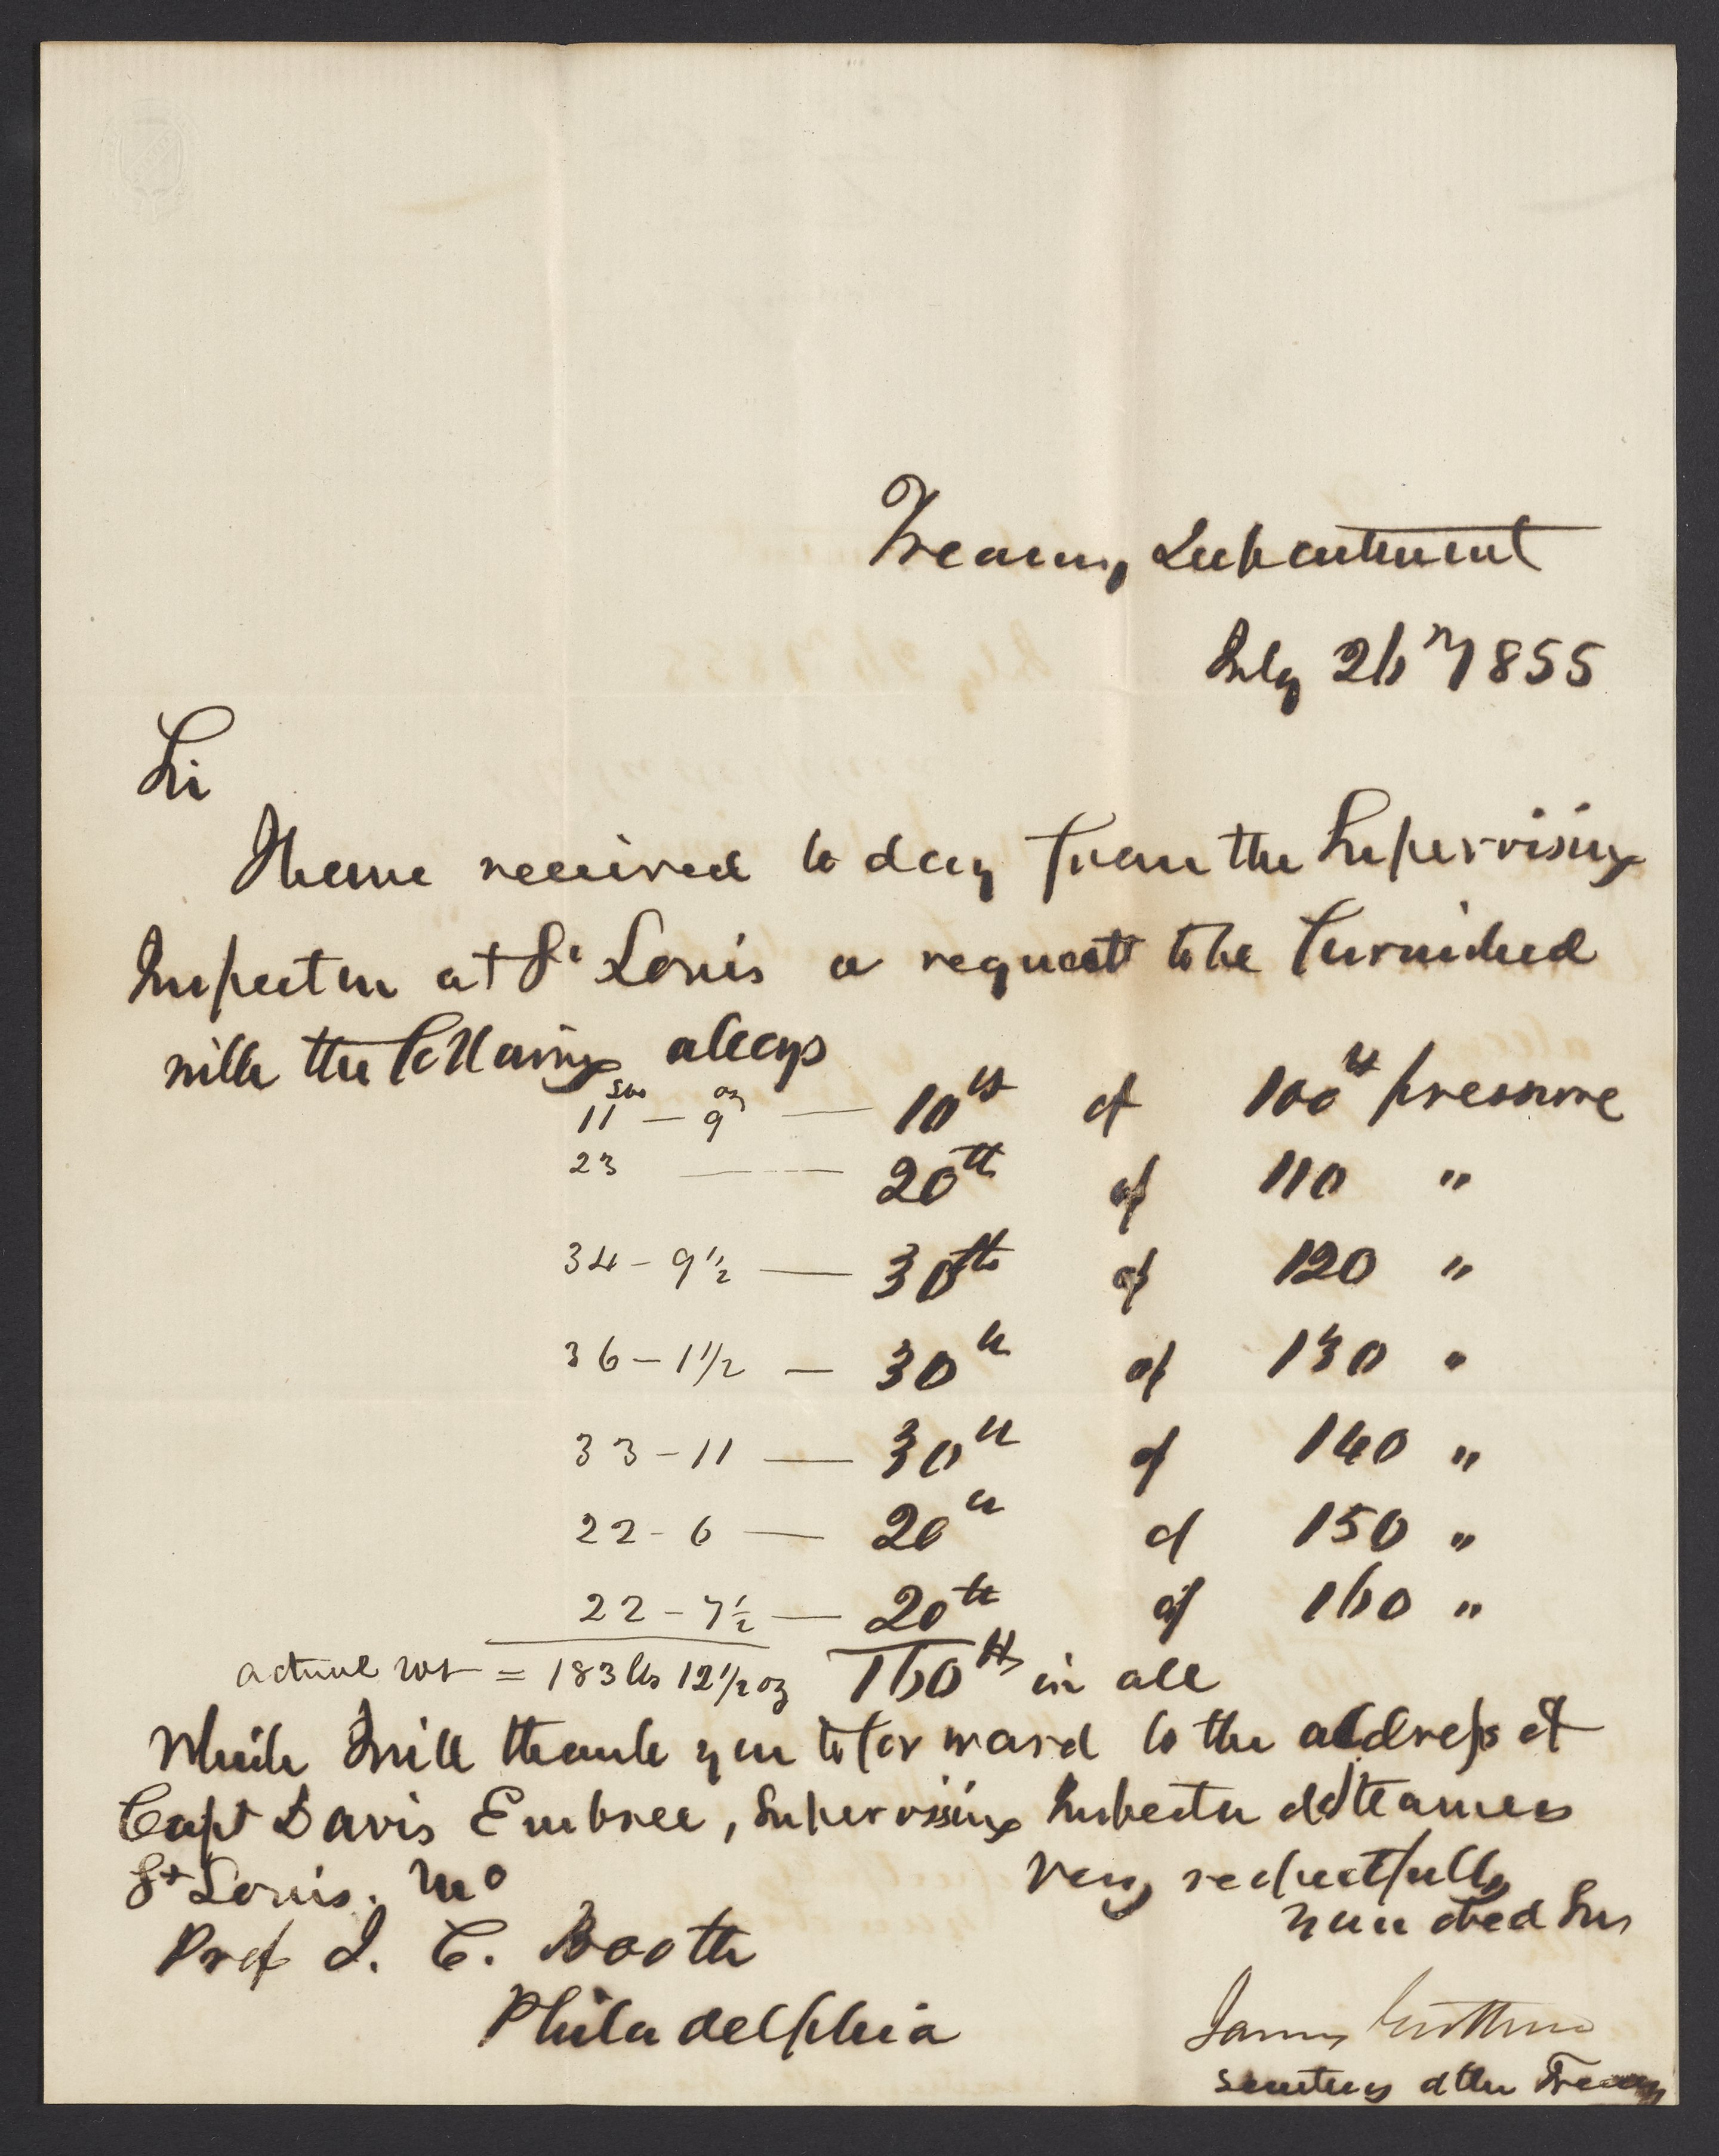 Treasury Department
July 26th 1855
Sir
I have received to day from the Supervising
Inspector at St Louis a request to be furnished
with the following alloys
11 lbs — 9 oz — 10 lbs of 100 lbs pressure
23 — 20 lbs of 110 "
34 - 9 1/2 — 30 lbs of 120 "
36 - 1 1/2 — 30 lbs of 130 "
33 - 11 — 30 lbs of 140 "
22 - 6 — 20 lbs of 150 "
22 - 7 1/2 — 20 lbs of 160 "
actual wt = 183 lbs 12 1/2 oz 160 lbs in all
Which I will thank you to forward to the address of
Capt Davis Embree, Supervising Inspector of Steamers
St Louis. Mo
Very respectfully
your obed Ser
Prof J. C. Booth
Philadelphia
James Guthrie
Secretary of the Treasury